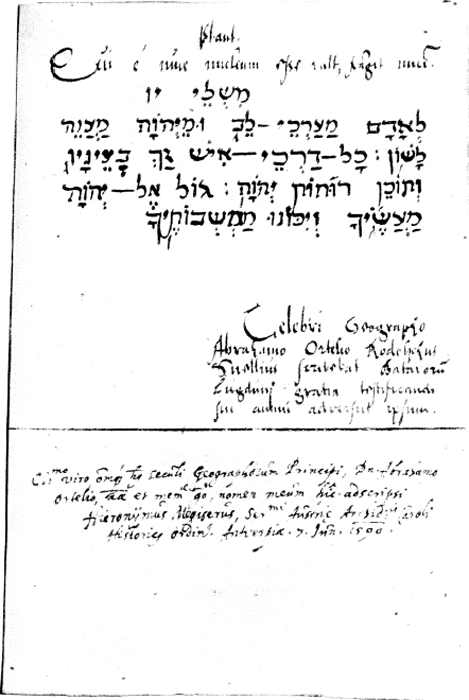 Plaut.
Qui é nuce nucleum esse vult, frāgit nucē.
מִשְׁלֵי יו
לְאָדָם מַעַרְכֵי־לֵב וּמֵיְהֹוָה מַעֲנֵה
לָשׁוֹן׃ כָּל־דַּרְכֵי־אִישׁ זַךְ בְּעֵינָיו
וְתוֹכֵן רוּחוֹת יְהֹוָה׃ גּוֹל אֶל־יְהֹוָה
מַעֲשֶׂיךָ וְיִכּוֹנוּ מַחְשְׁבוֹתֶיךָ
Celebri Geographo
Abrahamo Ortelio Rodolphus
Snellius scribebat Batavorū
Lugduni gratia testificandi
sui animi adversus ipsum.
viro seculi Geographorum Principi, Dn. Abrahamo
Ortelio, et nomen meum hîc adscripsi
Hieronymus Megiserus, Ser.mi Austriæ Archid. Caroli
Historicus ordin. Antverpiæ. 7. Jun. 1590.